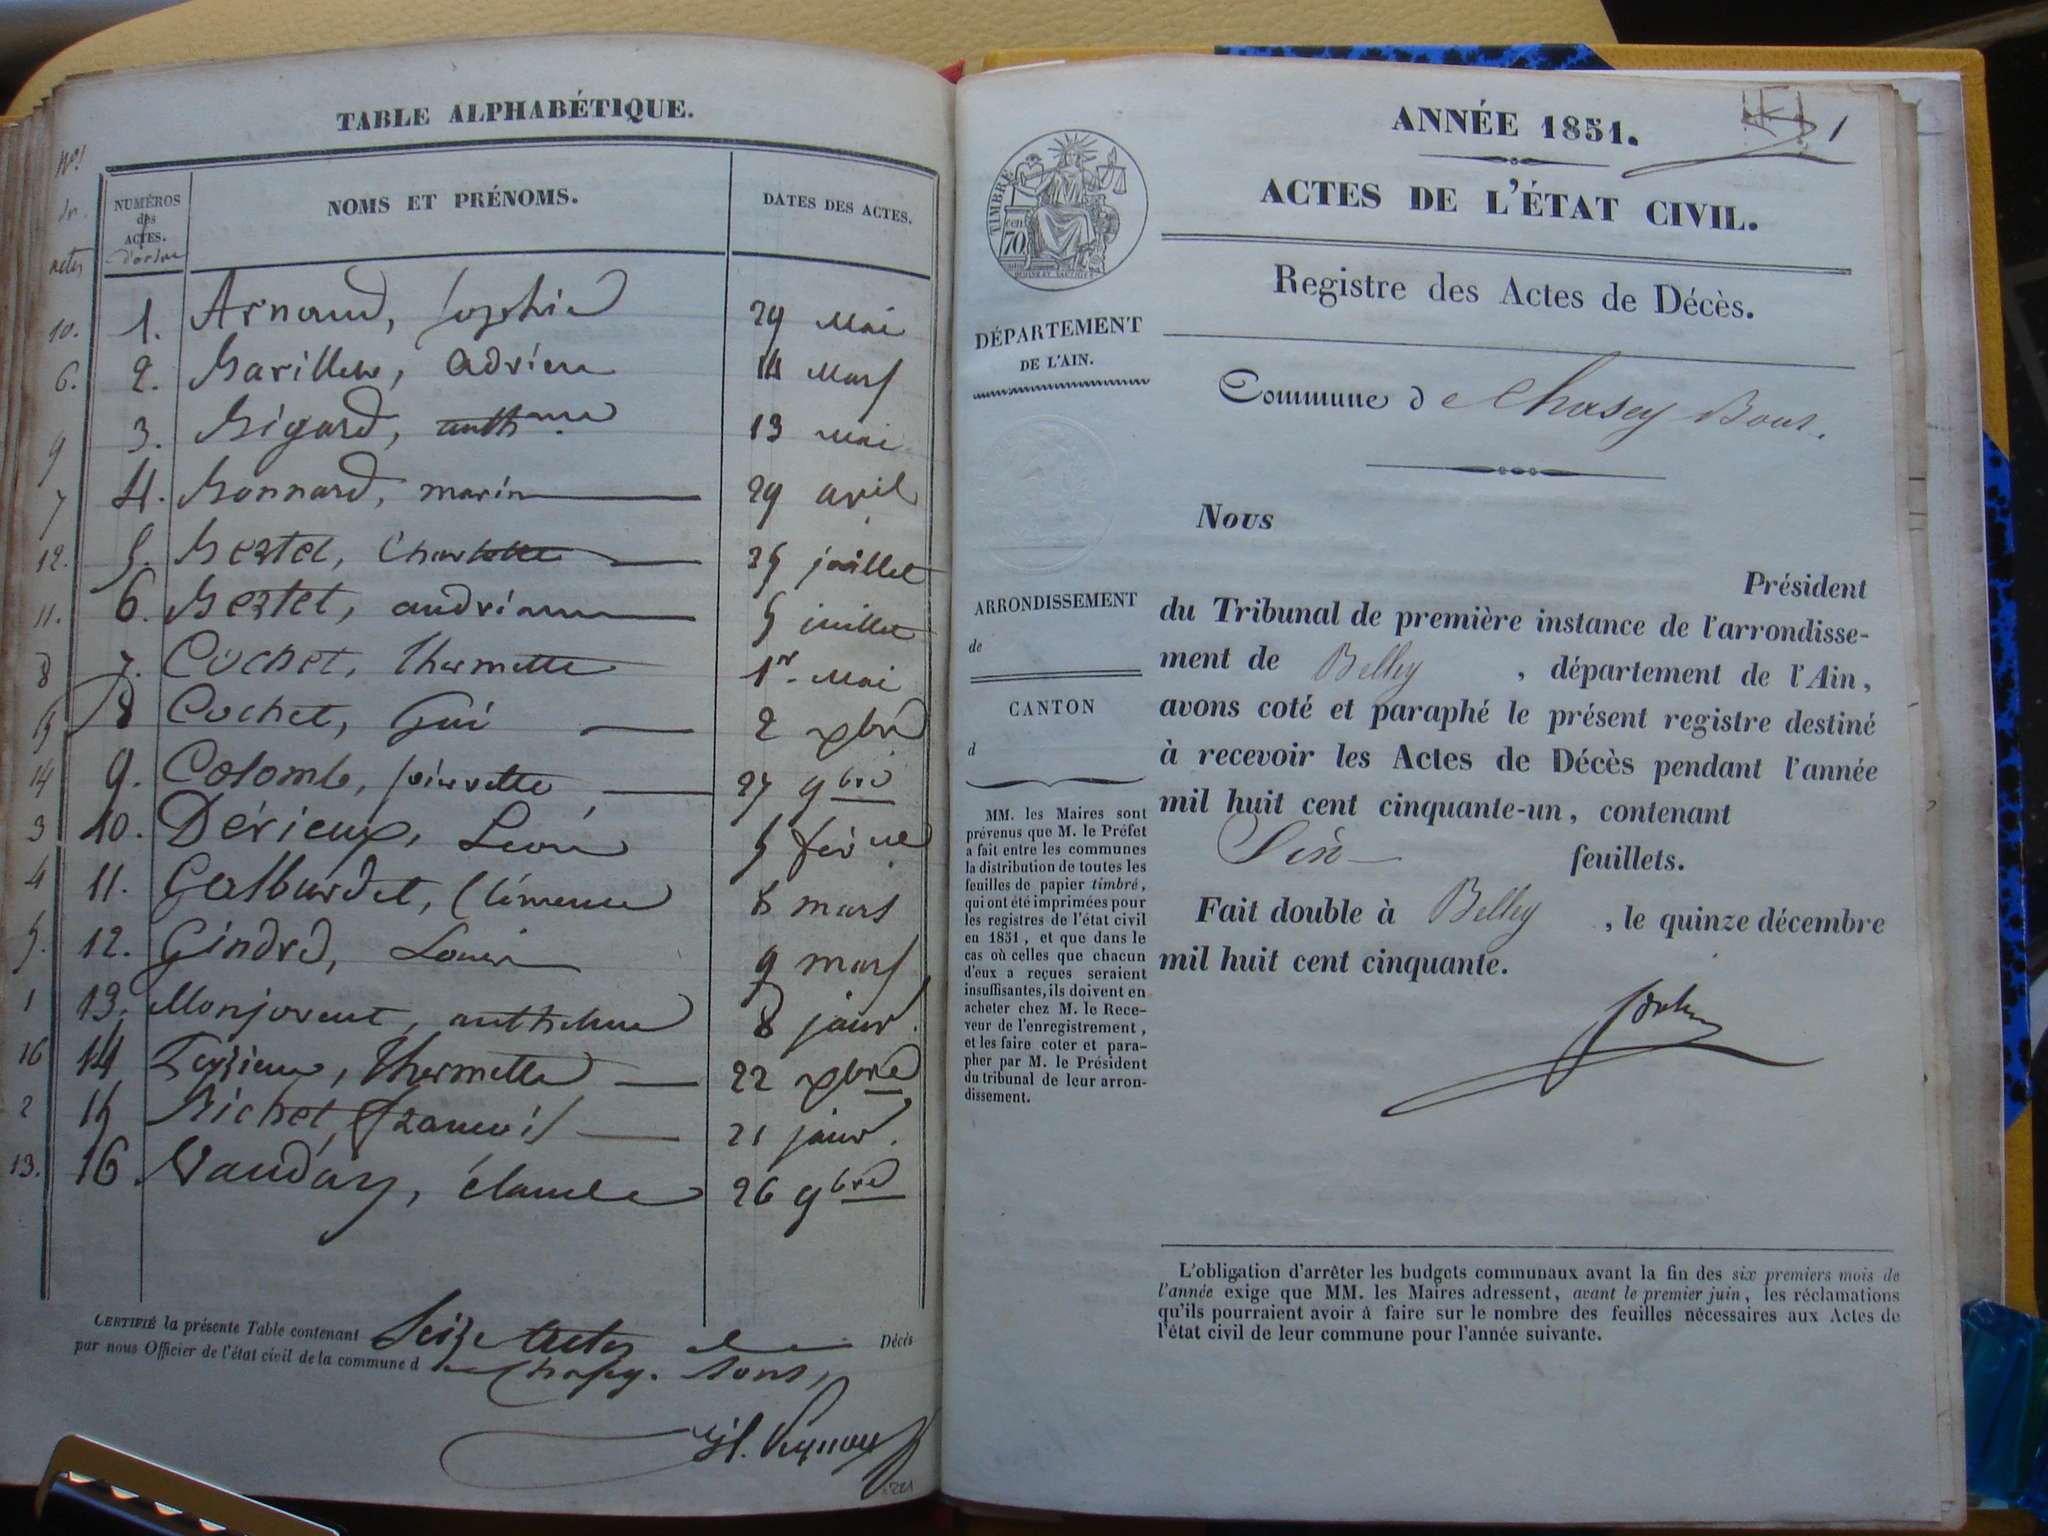 TABLE ALPHABÉTIQUE.
Nos
actes
NUMÉROS
des
ACTES.
d'ordre
NOMS ET PRÉNOMS.
DATES DES ACTES.
10. 1. Arnaud, Sophie 29 Mai
6. 2. Barillet, Adrien 14 Mars
9 3. Bigard, anthme 13 mai
7 4. Bonnard, marin 29 avril
12. 5. Bertet, Charlotte 25 juillet
11. 6. Bertet, andrienne 5 juillet
8 7. Cochet, thermette 1er. Mai
15 8 Cochet, Gui 2 xbre
14 9. Colomb, pierrette 27 9bre
3 10. Dérieux, Léonie 5 février
4 11. Galburdet, Clémence 8 mars
5. 12. Gindre, Louis 9 mars
1 13. Monjovent, anthelme 8 janv.
16 14 thermette 22 xbre
2 15 Richet, françois 21 janv.
13. 16. Vauday, claude 26 9bre
CERTIFIÉ la présente Table contenant Seize actes de Décès
par nous Officier de l'état civil de la commune de Chazey-bons,
ANNÉE 1851.
1
ACTES DE L'ÉTAT CIVIL.
TIMBRE
cen
70
Registre des Actes de Décès.
DÉPARTEMENT
DE L'AIN.
Commune de Chasey Bons.
Nous
Président
du Tribunal de première instance de l'arrondisse-
ment de Belley, département de l'Ain,
avons coté et paraphé le présent registre destiné
à recevoir les Actes de Décès pendant l'année
mil huit cent cinquante-un, contenant
Six feuillets.
Fait double à Belley, le quinze décembre
mil huit cent cinquante.
ARRONDISSEMENT
de
CANTON
d
MM. les Maires sont
prévenus que M. le Préfet
a fait entre les communes
la distribution de toutes les
feuilles de papier timbré,
qui ont été imprimées pour
les registres de l'état civil
en 1851, et que dans le
cas où celles que chacun
d'eux a reçues seraient
insuffisantes, ils doivent en
acheter chez M. le Rece-
veur de l'enregistrement,
et les faire coter et para-
pher par M. le Président
du tribunal de leur arron-
dissement.
L'obligation d'arrêter les budgets communaux avant la fin des six premiers mois de
l'année exige que MM. les Maires adressent, avant le premier juin, les réclamations
qu'ils pourraient avoir à faire sur le nombre des feuilles nécessaires aux Actes de
l'état civil de leur commune pour l'année suivante.